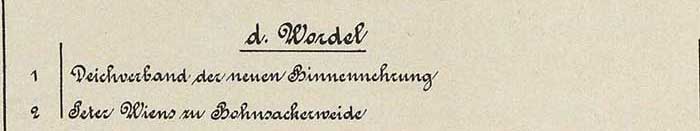 d. Wordel
1 Deichverband der neuen Binnennehrung
2 Peter Wiens zu Bohnsackerweide